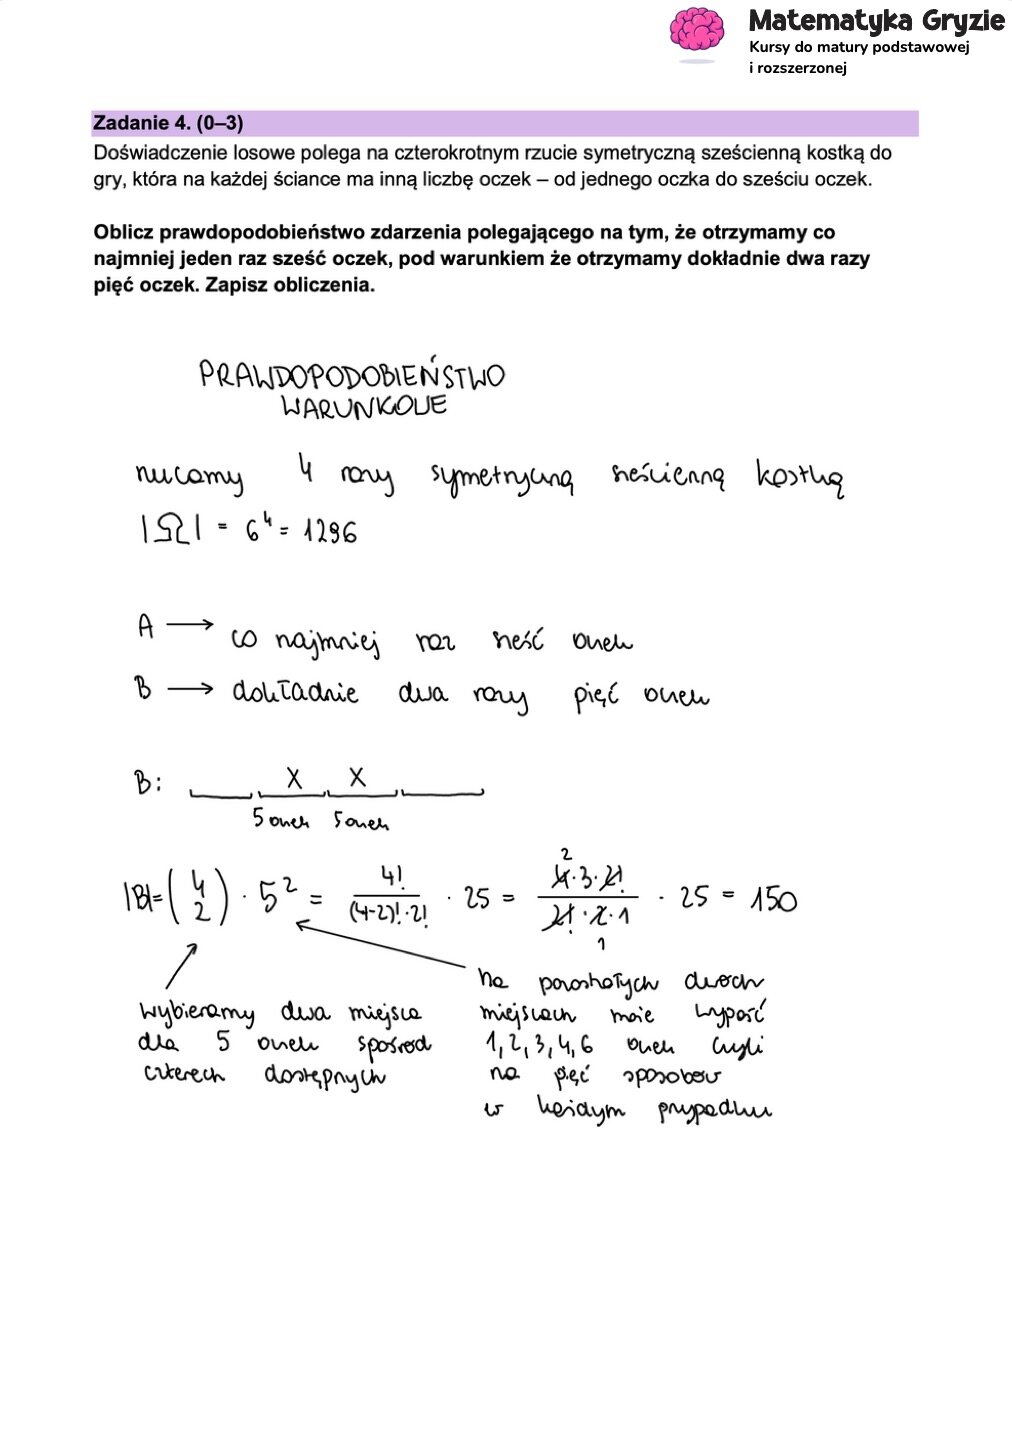 Matematyka Gryzie
Kursy do matury podstawowej
i rozszerzonej
Zadanie 4. (0–3)
Doświadczenie losowe polega na czterokrotnym rzucie symetryczną sześcienną kostką do
gry, która na każdej ściance ma inną liczbę oczek – od jednego oczka do sześciu oczek.
Oblicz prawdopodobieństwo zdarzenia polegającego na tym, że otrzymamy co
najmniej jeden raz sześć oczek, pod warunkiem że otrzymamy dokładnie dwa razy
pięć oczek. Zapisz obliczenia.
PRAWDOPODOBIEŃSTWO
WARUNKOWE
rzucamy 4 razy symetryczną sześcienną kostką
|Ω| = 6⁴ = 1296
A → co najmniej raz sześć oczek
B → dokładnie dwa razy pięć oczek
B: X X
5 oczek 5 oczek
|B| = (4 2) · 5² = 4!/((4-2)!·2!) · 25 = 4·3·2!/(2!·2·1) · 25 = 150
2
1
wybieramy dwa miejsca
dla 5 oczek spośród
czterech dostępnych
na pozostałych dwóch
miejscach może wypaść
1, 2, 3, 4, 6 oczek czyli
na pięć sposobów
w każdym przypadku